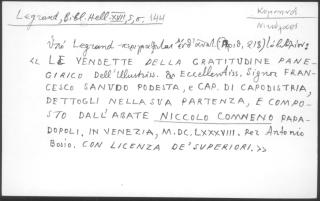 Legrand, Bibl. Hell. XVII, 5, σ. 144
Κομνηνός
Νικόλαος
Ὑπὸ Legrand περιγράφεται
« LE VENDETTE DELLA GRATITUDINE PANE-
GIRICO Dell' Illustriss. & Eccellentiss. Signor FRAN-
CESCO SANUDO PODESTA, e CAP. DI CAPODISTRIA,
DETTOGLI NELLA SUA PARTENZA, E COMPO-
STO DALL'ABATE NICCOLO COMNENO PAPA-
DOPOLI. IN VENEZIA, M.DC.LXXXVIII. Per Antonio
Bosio. CON LICENZA DE' SUPERIORI. »